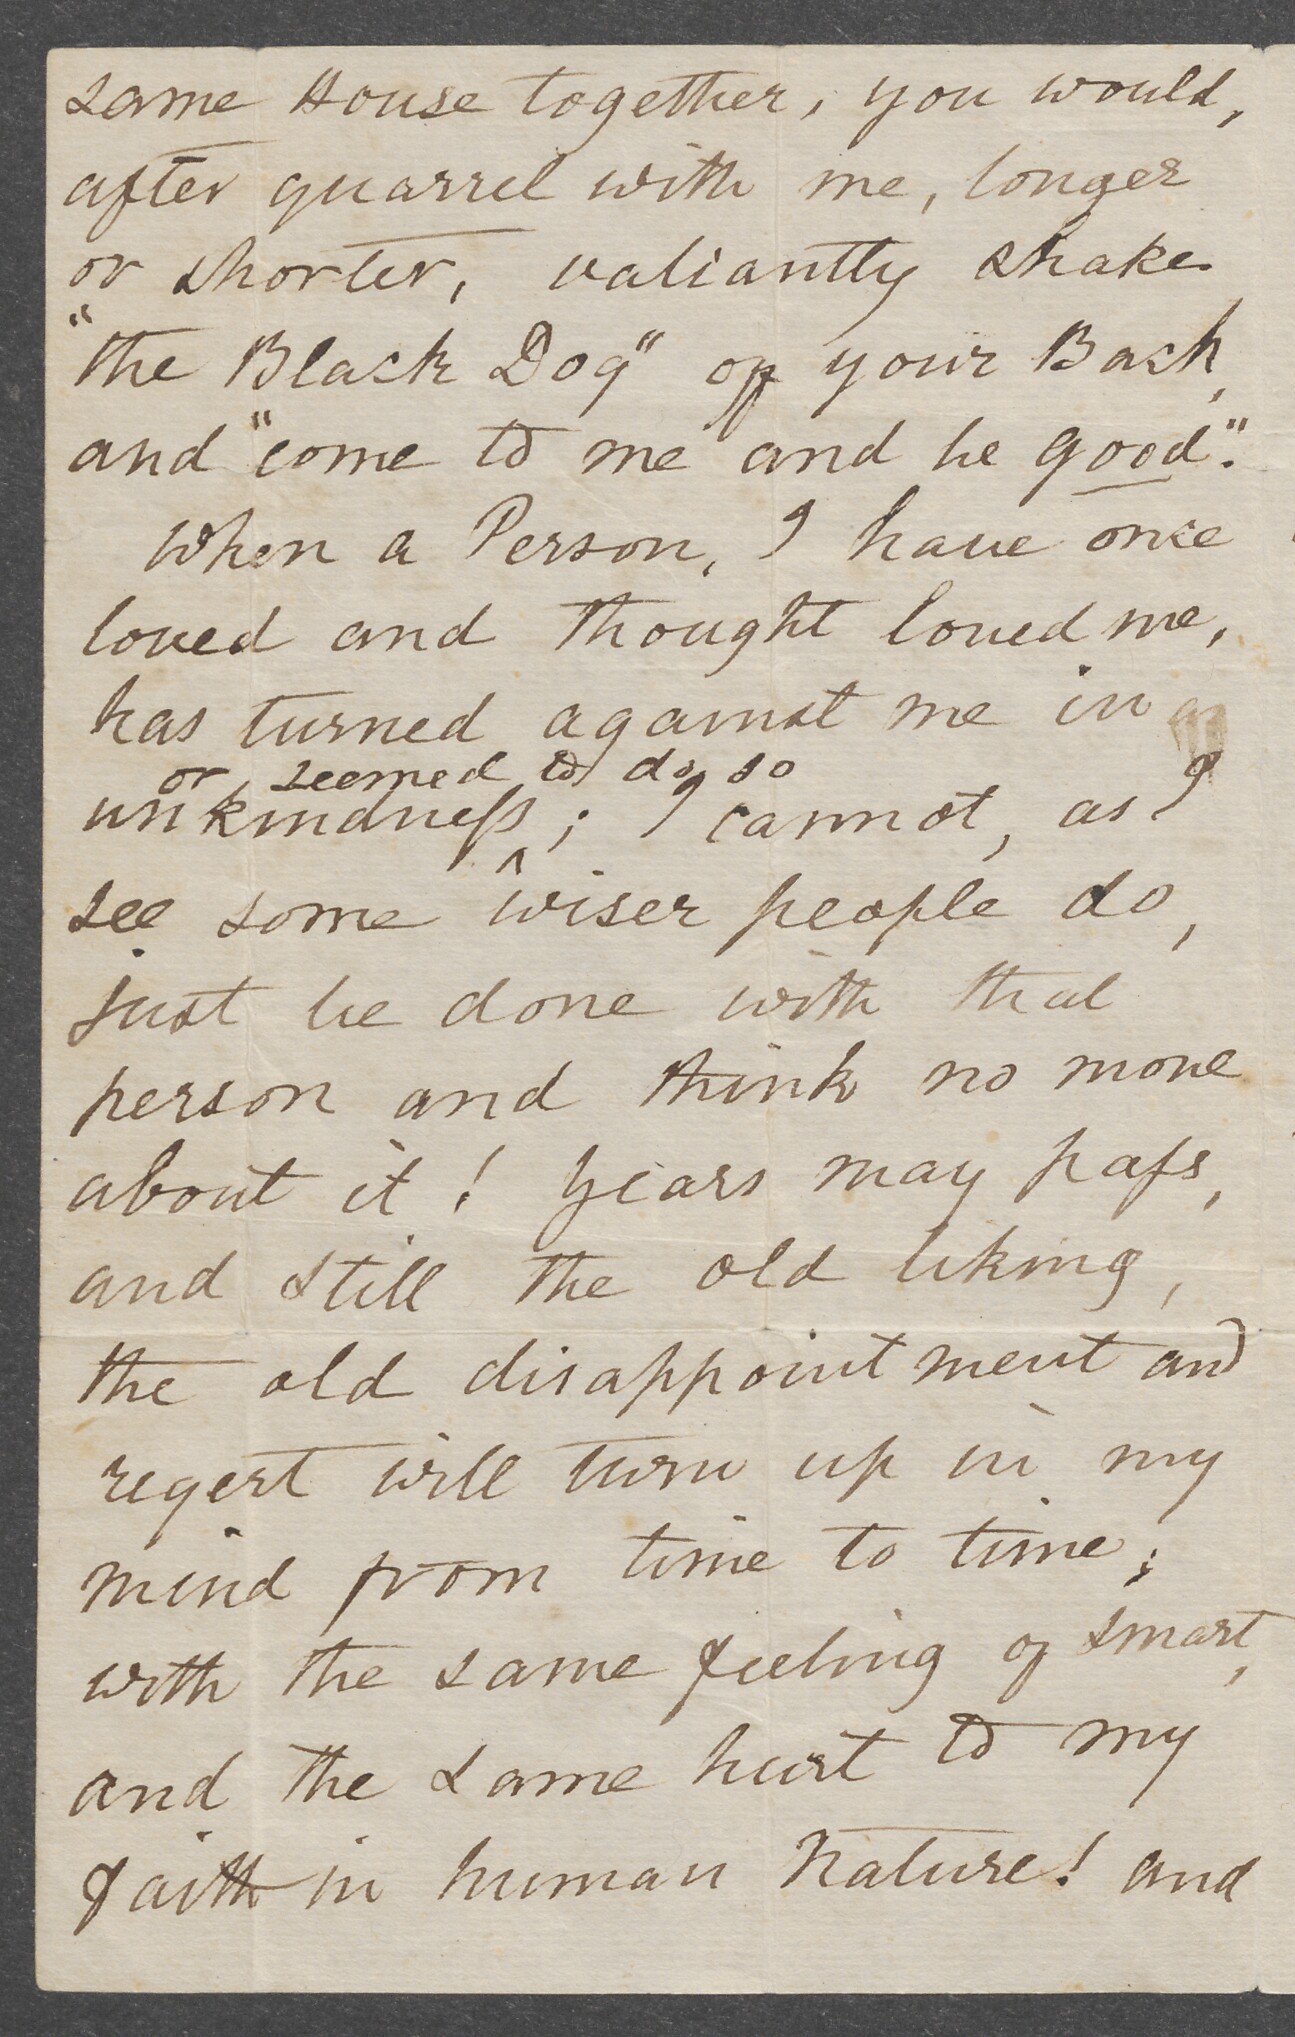 same House together, you would,
after quarrel with me, longer
or shorter, valiantly shake
"the Black Dog" off your Back,
and "come to me and be good".
When a Person, I have once
loved and thought loved me,
has turned against me in
or seemed to do so
unkindness; I cannot, as I
see some wiser people do,
just be done with that
person and think no more
about it! Years may pass,
and still the old liking,
the old disappointment and
regert will turn up in my
mind from time to time;
with the same feeling of smart,
and the same hurt to my
faith in human Nature! and